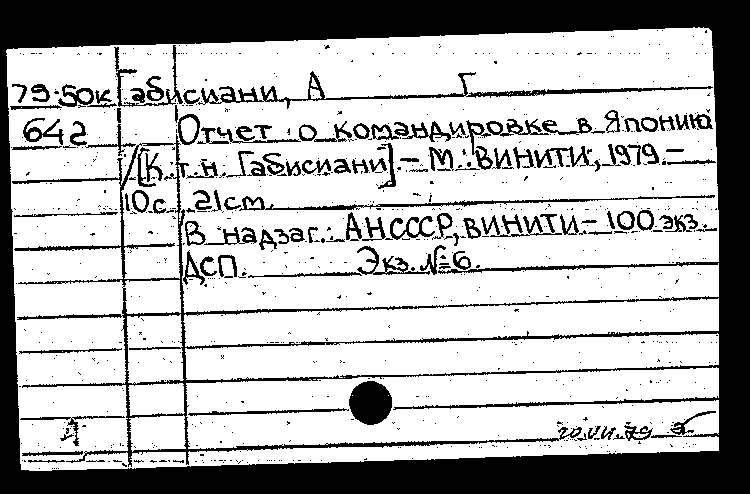 79-50к Габисиани, А Г
642 Отчет о командировке в Японию
/[К.т.н. Габисиани].- М.: ВИНИТИ, 1979.-
10с. 21см.
В надзаг.: АН СССР, ВИНИТИ - 100 экз.
ДСП. Экз. №6.
20.VII.79